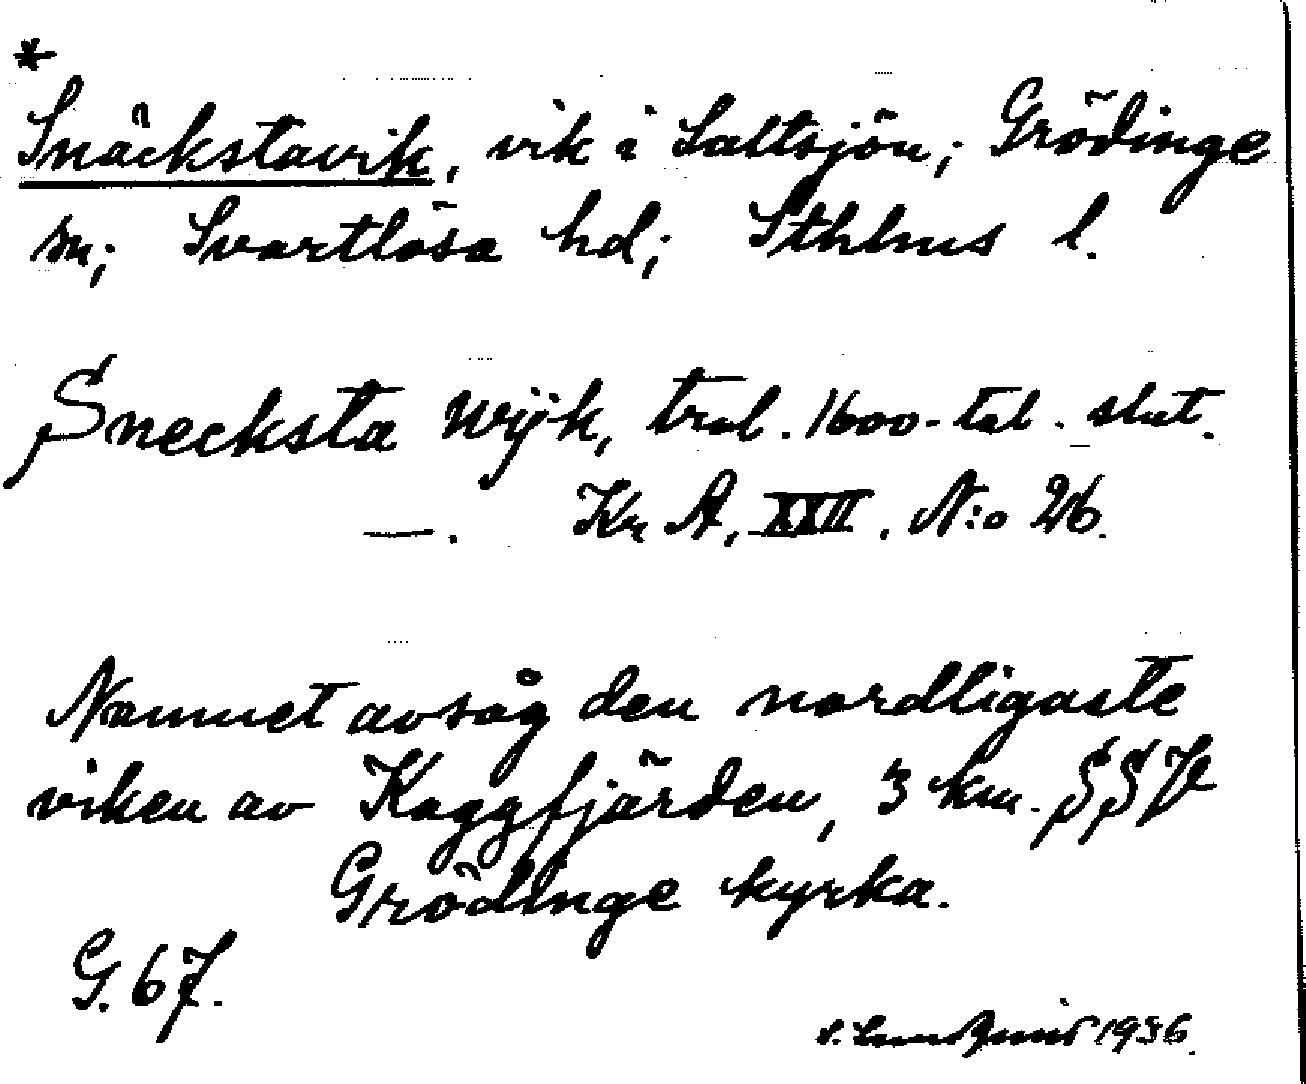 *
Snäckstavik, vik i Saltsjön; Grödinge
sn; Svartlösa hd; Sthlms l.
Snecksta Wijk, trol. 1600-tal. slut.
—. Kr A, XXII. N:o 26.
Namnet avsåg den nordligaste
viken av Kaggfjärden, 3 km. SSV
Grödinge kyrka.
G. 67.
1936